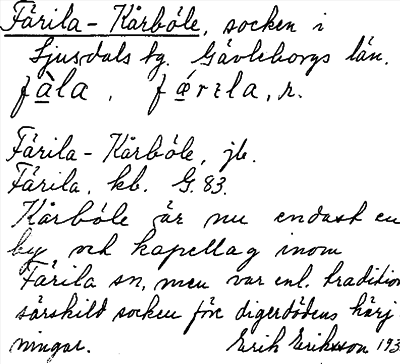 Färila-Kårböle, socken i
Ljusdals tg. Gävleborgs län.
fàla, fǽrɪla, r.
Färila-Kårböle, jb.
Färila, kb. G. 83.
Kårböle är nu endast en
by och kapellag inom
Färila sn, men var enl. tradition
särskild socken före digerdödens härj-
ningar. Erik Eriksson 193